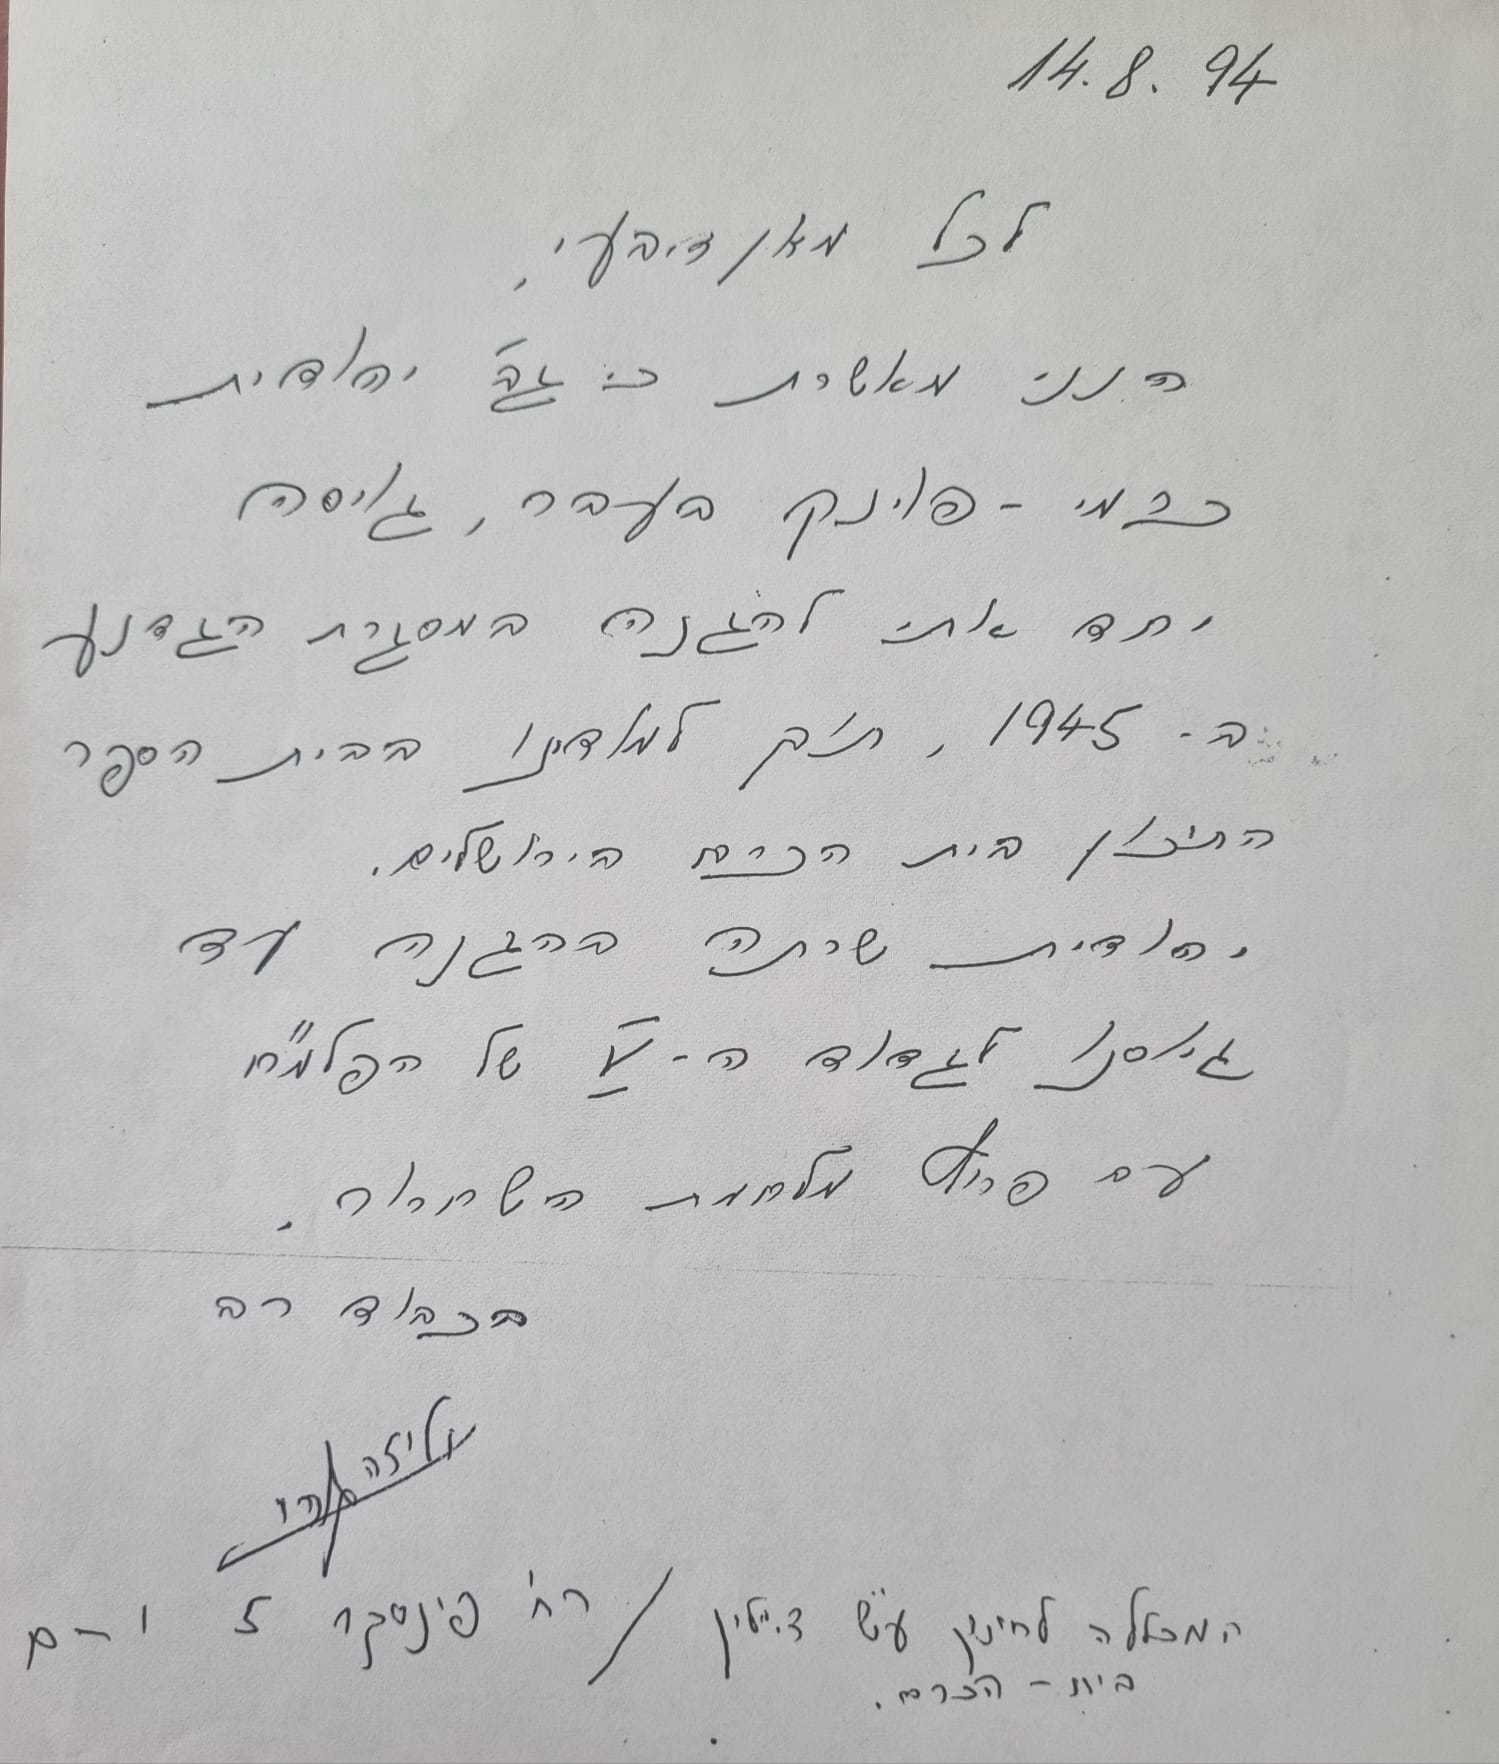 14.8.94
לכל מאן דיבעי,
הנני מאשרת כי גב' יהודית
כרמי - פוינק בעבר, גויסה
יחד אתי להגנה במסגרת הגדנע
ב- 1945, תוך למודינו בבית הספר
התיכון בית הכרם בירושלים.
יהודית שרתה בהגנה עד
גיוסנו לגדוד ה-V של הפלמ"ח
עם פרוץ מלחמת השחרור.
בכבוד רב
עליזה
המכללה לחינוך ע"ש ד. ילין / רח' פינסקר 5 י-ם
בית - הכרם.